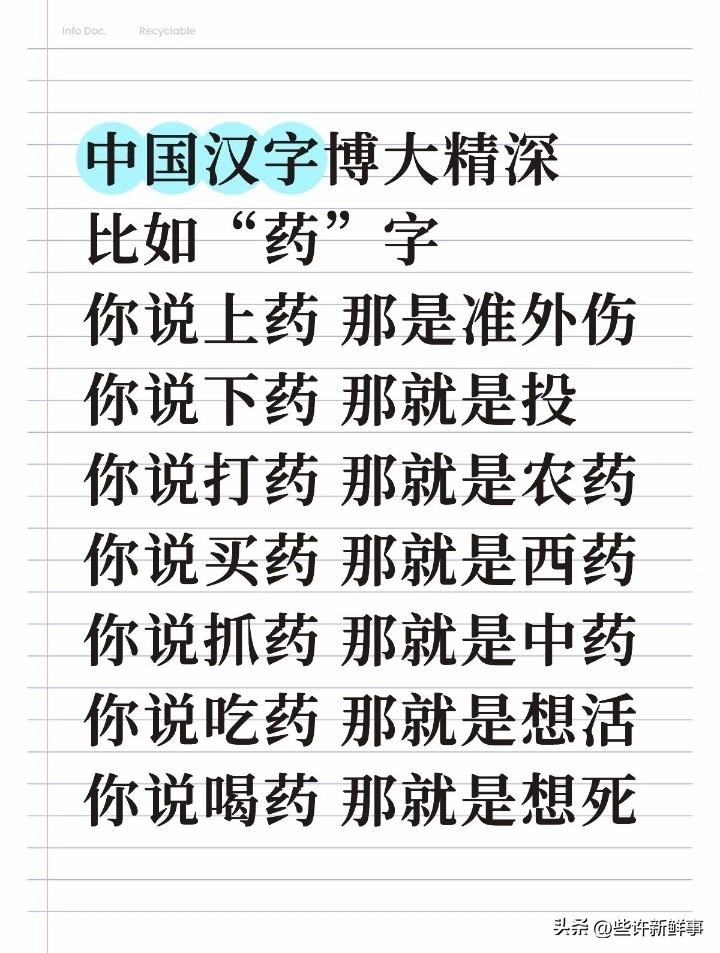 Info Doc. Recyclable
中国汉字博大精深
比如“药”字
你说上药 那是准外伤
你说下药 那就是投
你说打药 那就是农药
你说买药 那就是西药
你说抓药 那就是中药
你说吃药 那就是想活
你说喝药 那就是想死
头条 @些许新鲜事